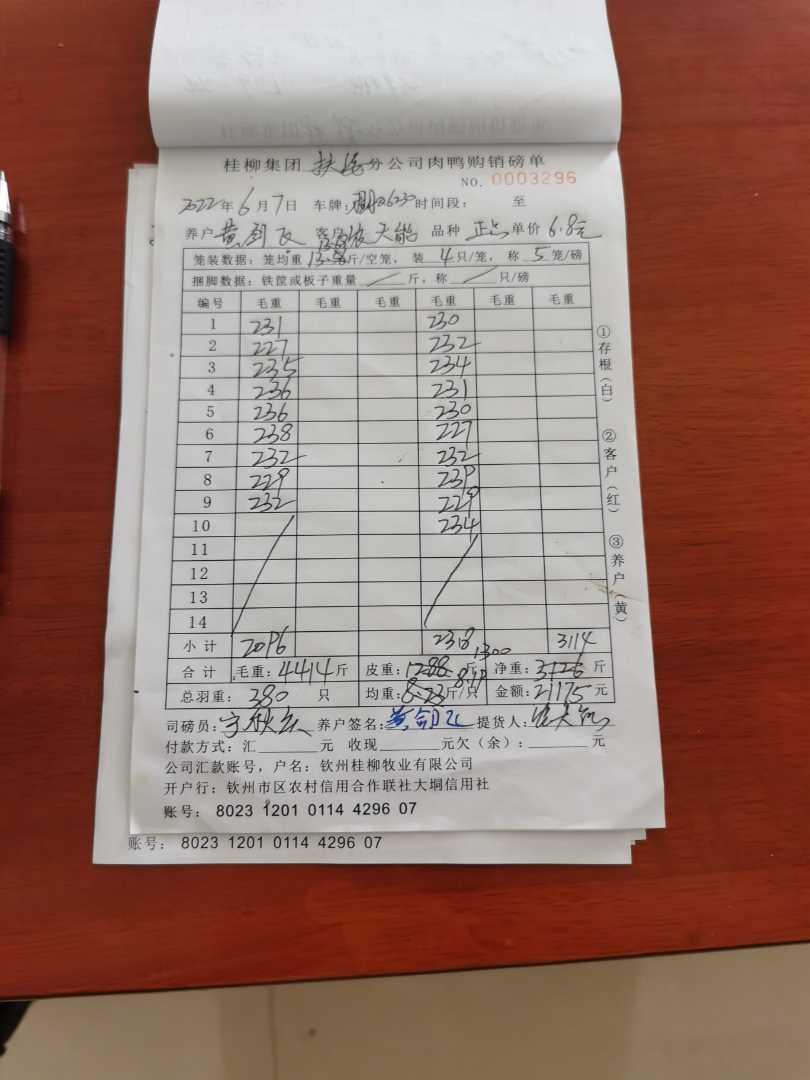 桂柳集团 扶绥 分公司肉鸭购销磅单
NO. 0003296
2022年6月7日 车牌: 时间段: 至
养户 黄剑飞 客户 天能 品种 正品 单价 6.8元
笼装数据:笼均重 斤/空笼,装 4 只/笼,称 5 笼/磅
捆脚数据:铁筐或板子重量 / 斤,称 / 只/磅
编号 毛重 毛重 毛重 毛重 毛重 毛重
1 231 230
2 227 232
3 235 234
4 236 231
5 236 230
6 238 227
7 232 232
8 229 239
9 232 229
10 234
11
12
13
14
小计 2096 2318 3114
1300
合计 毛重:4414斤 皮重:1288斤 净重:3126斤
8.19
总羽重:380 只 均重:8.23斤/只 金额:21175元
司磅员: 养户签名:黄剑飞 提货人:
付款方式:汇 元 收现 元欠(余): 元
公司汇款账号,户名:钦州桂柳牧业有限公司
开户行:钦州市区农村信用合作联社大垌信用社
账号: 8023 1201 0114 4296 07
账号: 8023 1201 0114 4296 07
①存根(白)
②客户(红)
③养户(黄)